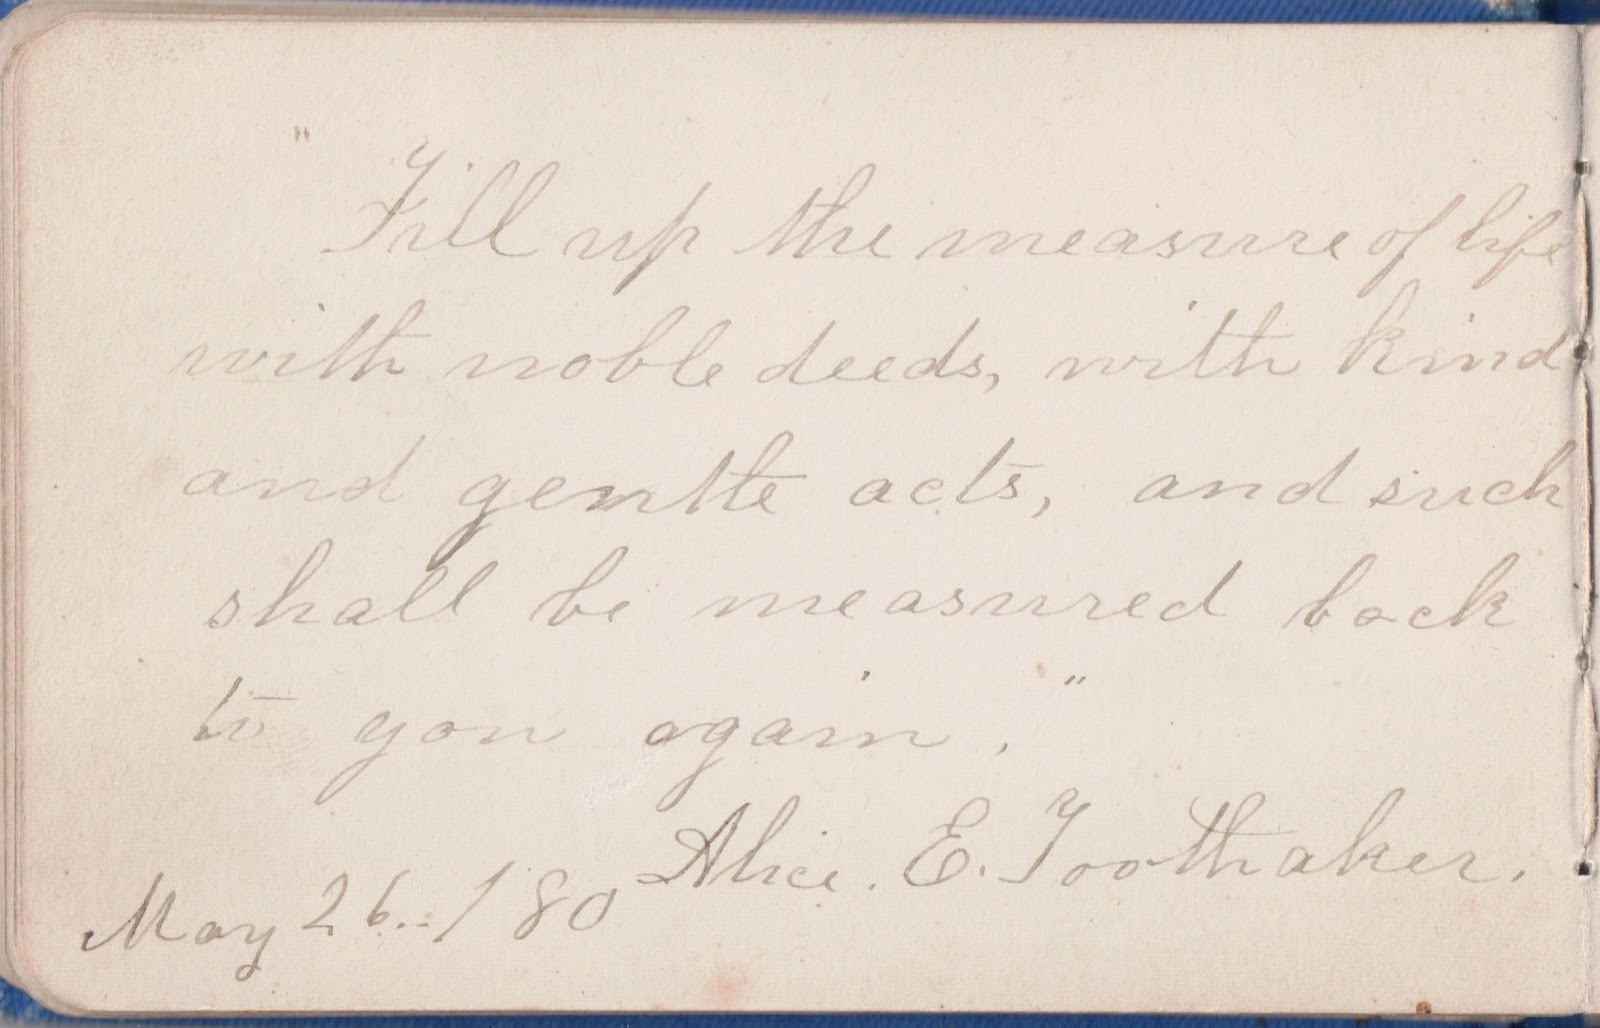 "Fill up the measure of life
with noble deeds, with kind
and gentle acts, and such
shall be measured back
to you again."
Alice. E. Toothaker.
May 26../80